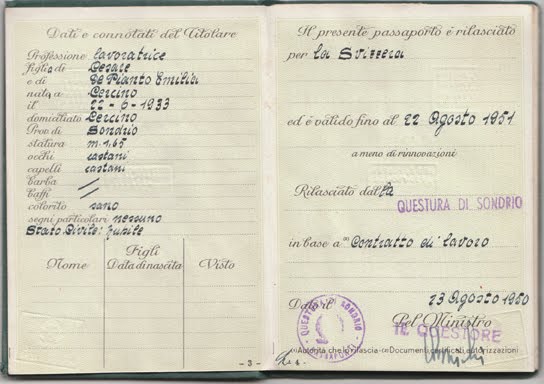 Dati e connotati del Titolare
Professione lavoratrice
figlia di Cesare
e di De Pianto Emilia
nata a Cercino
il 22-6-1933
domiciliato Cercino
Prov. di Sondrio
statura m. 1.65
occhi castani
capelli castani
barba //
baffi //
colorito sano
segni particolari nessuno
Stato Civile: Nubile
Figli
Nome Data di nascita Visto
- 3 -
Il presente passaporto è rilasciato
per la Svizzera
ed è valido fino al 22 Agosto 1951
a meno di rinnovazioni
Rilasciato dal la
QUESTURA DI SONDRIO
in base a (2) Contratto di lavoro
Dato il 23 Agosto 1950
Pel Ministro
IL QUESTORE
QUESTURA DI SONDRIO
- 4 -
(1) Autorità che lo rilascia - (2) Documenti, certificati, autorizzazioni